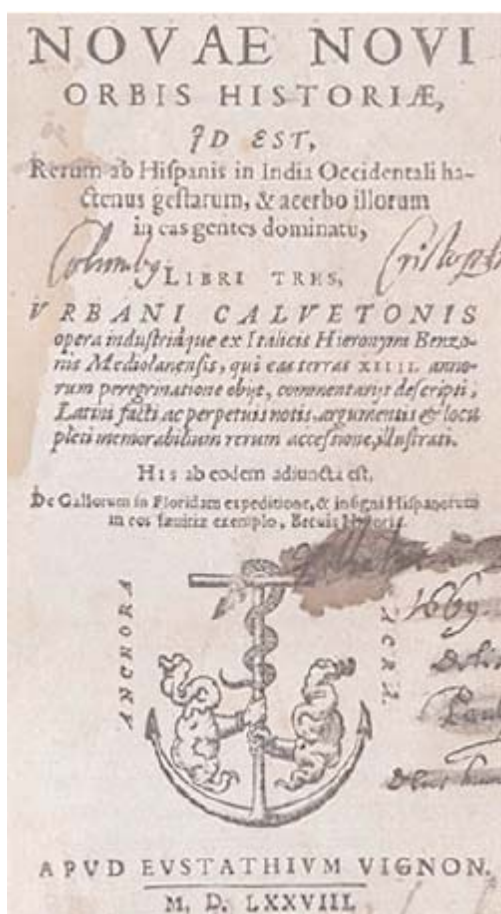 NOVAE NOVI
ORBIS HISTORIÆ,
ID EST,
Rerum ab Hispanis in India Occidentali ha-
ctenus gestarum, & acerbo illorum
in eas gentes dominatu,
LIBRI TRES,
VRBANI CALVETONIS
opera industriáque ex Italicis Hieronymi Benzo-
nis Mediolanensis, qui eas terras XIIII. anno-
rum peregrinatione obijt, commentarijs descripti,
Latini facti ac perpetuis notis, argumentis & locu
pleti memorabilium rerum accessione, illustrati.
His ab eodem adiuncta est,
De Gallorum in Floridam expeditione, & insigni Hispanorum
in eos sæuitiæ exemplo, Breuis Historia.
ANCHORA
SACRA.
1669
APVD EVSTATHIVM VIGNON.
M. D. LXXVIII.